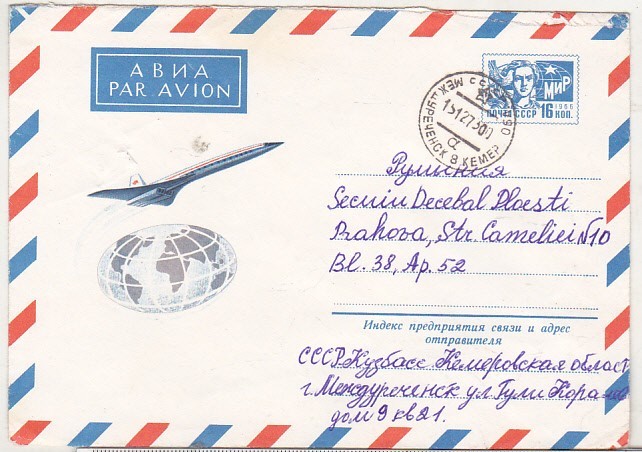 АВИА
PAR AVION
МИР
1966
ПОЧТА СССР 16 КОП.
МЕЖДУРЕЧЕНСК 8 КЕМЕР
Румыния
Decebal Ploesti
Prahova, Str Cameliei N10
Bl. 38, Ap. 52
Индекс предприятия связи и адрес
отправителя
СССР Кузбасс Кемеровская област
г. Междуреченск ул Гули
дом 9 кв 21.